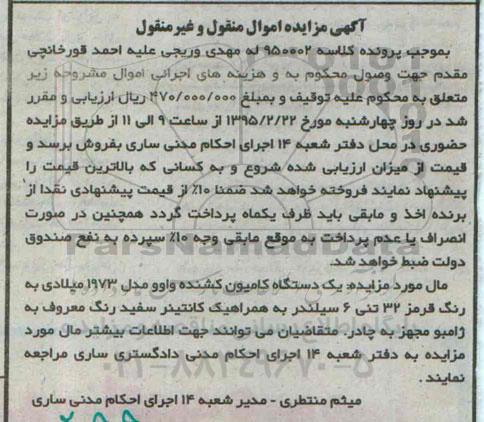 آگهی مزایده اموال منقول و غیرمنقول
بموجب پرونده کلاسه ۹۵۰۰۰۲ له مهدی وریجی علیه احمد قورخانچی
مقدم جهت وصول محکوم به و هزینه های اجرائی اموال مشروحه زیر
متعلق به محکوم علیه توقیف و بمبلغ ۴۷۰/۰۰۰/۰۰۰ ریال ارزیابی و مقرر
شد در روز چهارشنبه مورخ ۱۳۹۵/۲/۲۲ از ساعت ۹ الی ۱۱ از طریق مزایده
حضوری در محل دفتر شعبه ۱۴ اجرای احکام مدنی ساری بفروش برسد و
قیمت از میزان ارزیابی شده شروع و به کسانی که بالاترین قیمت را
پیشنهاد نمایند فروخته خواهد شد ضمنا ۱۰٪ از قیمت پیشنهادی نقدا از
برنده اخذ و مابقی باید ظرف یکماه پرداخت گردد همچنین در صورت
انصراف یا عدم پرداخت به موقع مابقی وجه ۱۰٪ سپرده به نفع صندوق
دولت ضبط خواهد شد.
مال مورد مزایده: یک دستگاه کامیون کشنده واوو مدل ۱۹۷۳ میلادی به
رنگ قرمز ۳۲ تنی ۶ سیلندر به همراهیک کانتینر سفید رنگ معروف به
ژامبو مجهز به چادر. متقاضیان می توانند جهت اطلاعات بیشتر مال مورد
مزایده به دفتر شعبه ۱۴ اجرای احکام مدنی دادگستری ساری مراجعه
نمایند .
میثم منتطری - مدیر شعبه ۱۴ اجرای احکام مدنی ساری
ParsNamadData
۰۲۱-۸۸۳۴۹۶۷۰-۵